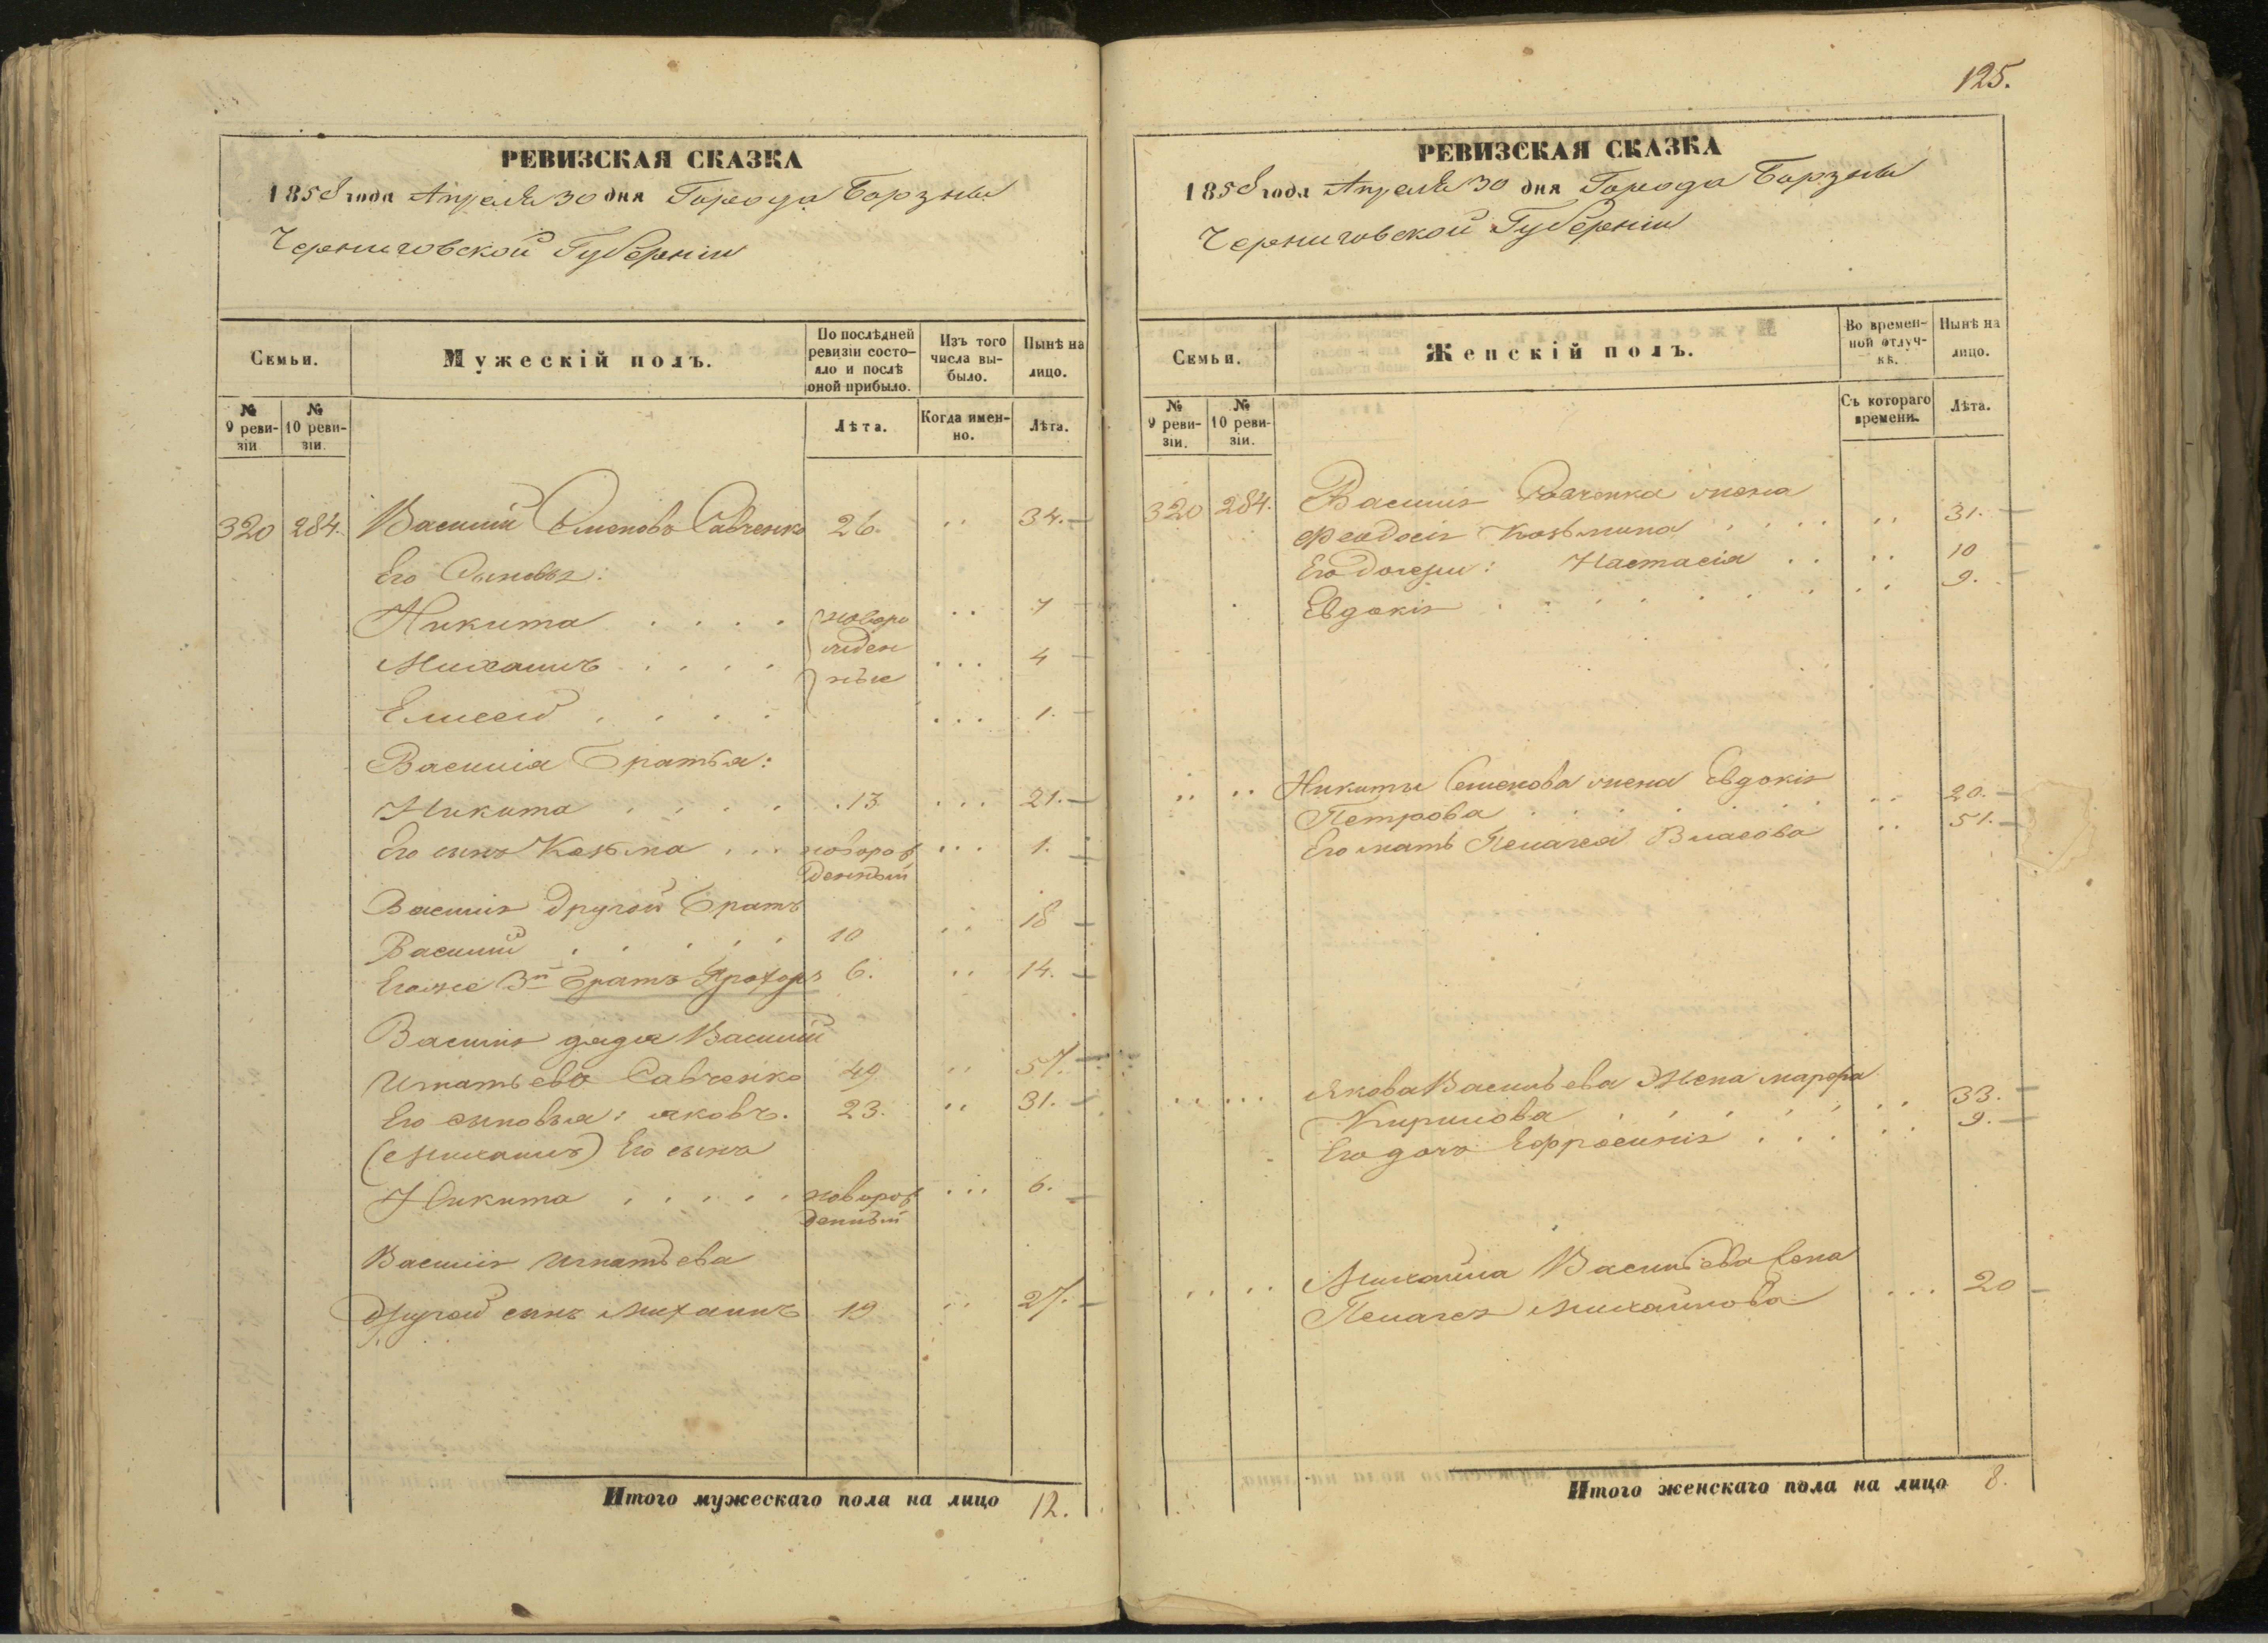 РЕВИЗСКАЯ СКАЗКА
1858 года Апреля 30 дня Города Борзны
Черниговской Губерніи
Семьи.
Мужескій полъ.
По послѣдней ревизіи состо-
яло и послѣ
оной прибыло.
Изъ того
числа вы-
было.
Нынѣ на
лицо.
№
9 реви-
зіи.
№
10 реви-
зіи.
Лѣта.
Когда имен-
но.
Лѣта.
320 284. Василій Семеновъ Савченко 26. 34.
Его Сыновья:
Никита новоро 7
Михаилъ жден 4
ные
Елисей 1.
Василія Братья:
Никита 13 21.
Его сынъ Козьма новорож 1.
денный
Василія другой Братъ
Василій 10 18
Егоже 3й Братъ Прохоръ 6. 14.
Василія дядя Василій
Игнатьевъ Савченко 49 57.
Его сыновья: Яковъ. 23. 31.
(Михаилъ) Его сынъ
Никита новорож 6.
денный
Василія Игнатьева
другой сынъ Михаилъ 19 27.
Итого мужескаго пола на лицо 12.
125.
РЕВИЗСКАЯ СКАЗКА
1858 года Апреля 30 дня Города Борзны
Черниговской Губерніи
Семьи.
Женскій полъ.
Во времен-
ной отлуч-
кѣ.
Нынѣ на
лицо.
№
9 реви-
зіи.
№
10 реви-
зіи.
Съ котораго
времени.
Лѣта.
320 284. Василія Савченка жена
Феодосія Козьмина 31.
Его дочери: Настасія 10
Евдокія 9.
Никиты Семенова жена Евдокія
Петрова 20.
Его мать Пелагея Власова 51.
Якова Васильева Жена Марфа
Кирилова 33.
Его дочь Ефросинія 9.
Михаила Васильева Жена
Пелагея Михайлова 20
Итого женскаго пола на лицо 8.